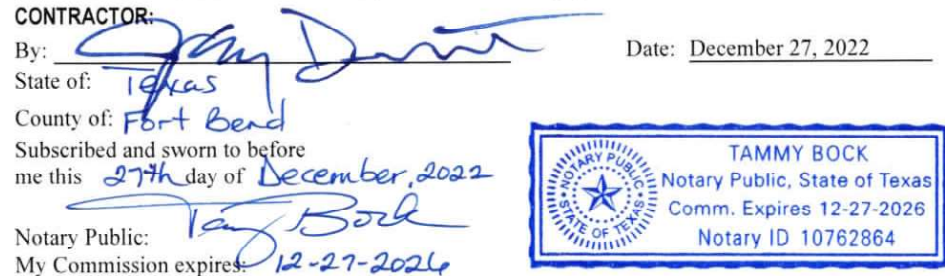 CONTRACTOR:
By:
Date: December 27, 2022
State of: Texas
County of: Fort Bend
Subscribed and sworn to before
me this 27th day of December, 2022
Tammy Bock
Notary Public:
My Commission expires: 12-27-2026
NOTARY PUBLIC
STATE OF TEXAS
TAMMY BOCK
Notary Public, State of Texas
Comm. Expires 12-27-2026
Notary ID 10762864